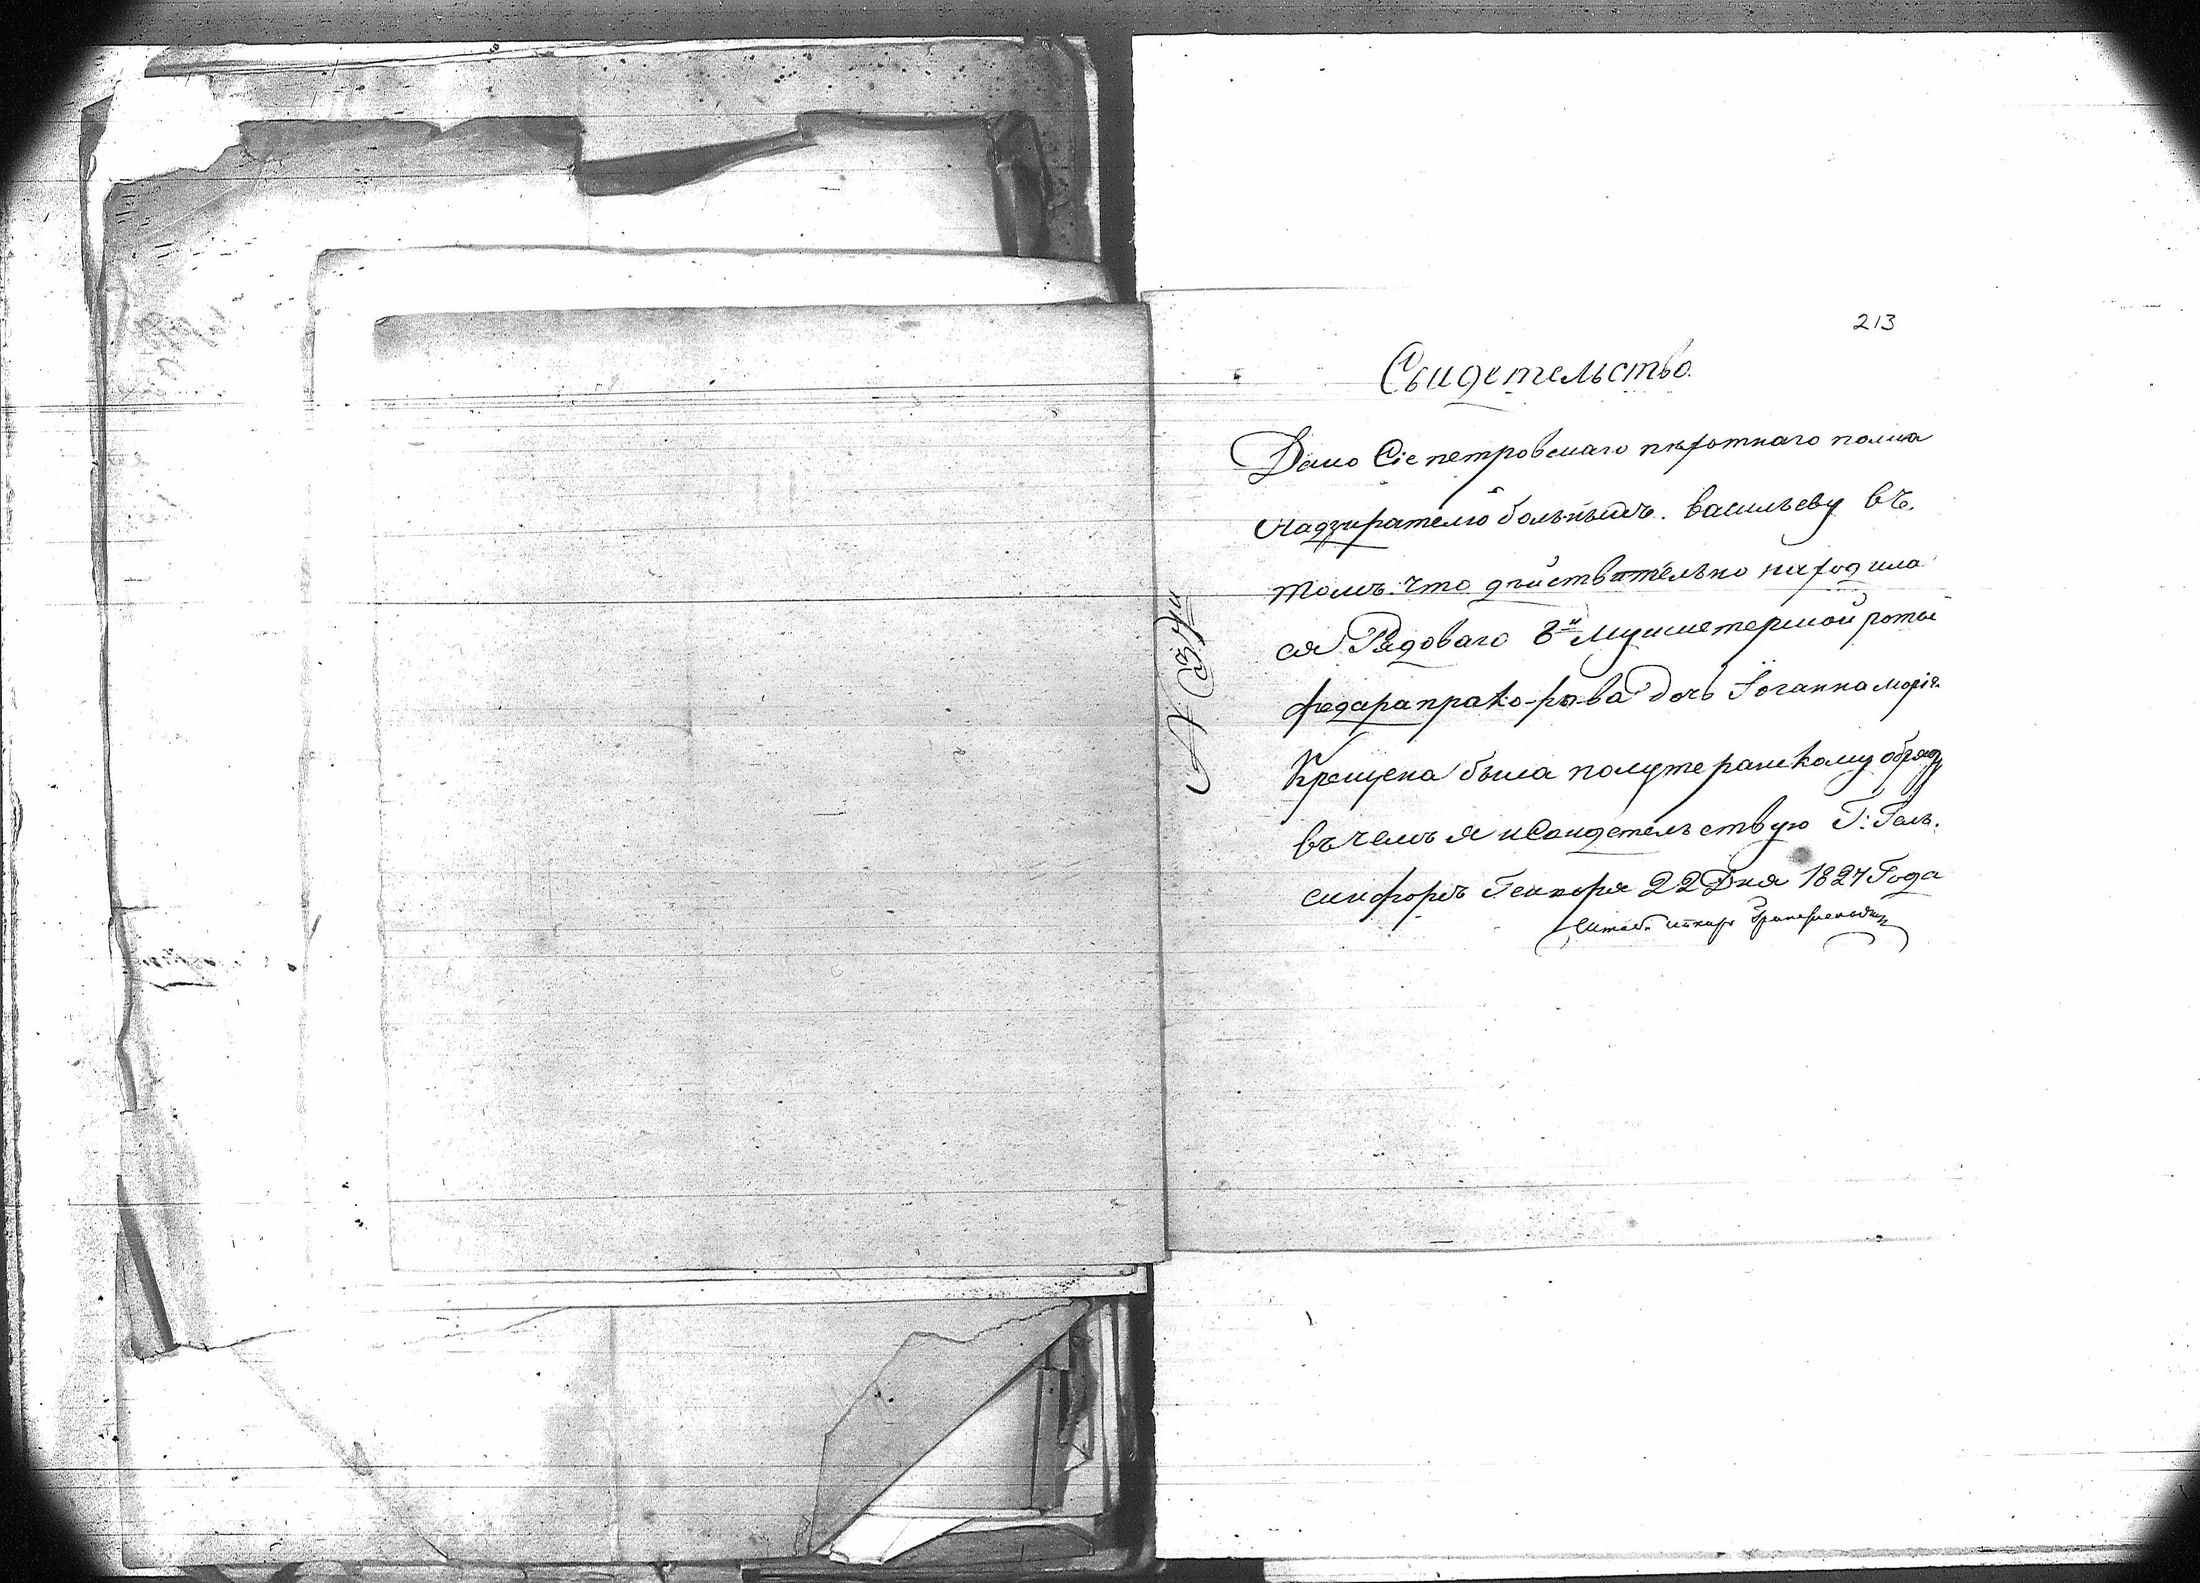 213
Свидетельство.
Дано Сіе петровскаго пѣхотнаго полка
надзирателю больныхъ. васильеву въ.
томъ. что дѣйствительно находила
ся Рядоваго 8й Мушкетерской роты
федара дочь Іоганна марія
Крещена была полутеранскому обряду
въ чемъ я исвидетельствую Г: Гель.
синфорсъ Генваря 22 Дня 1827 Года